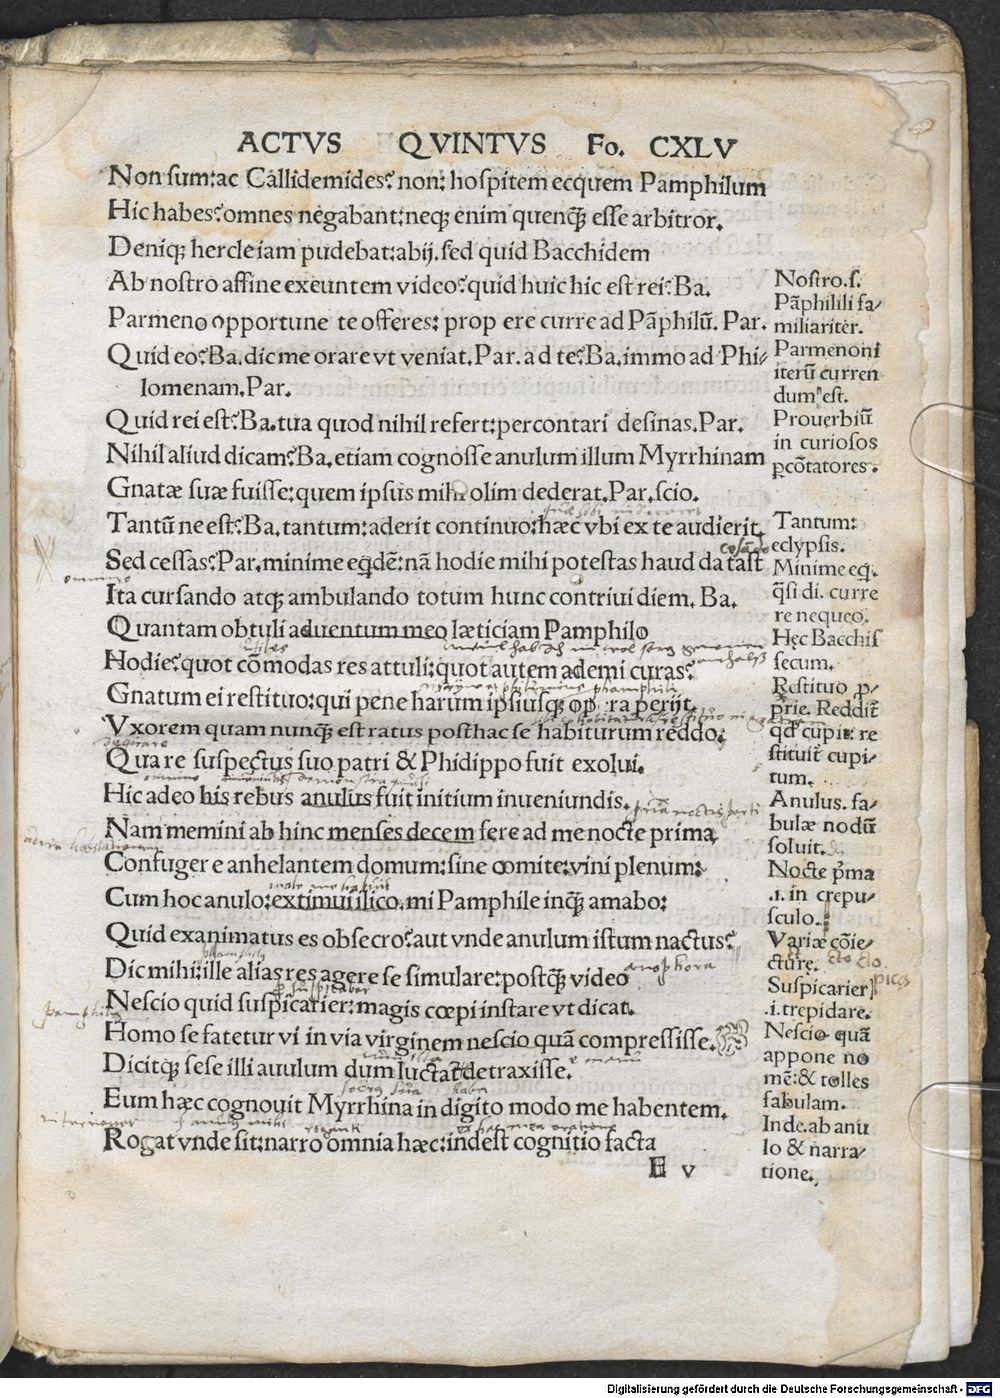 ACTVS QVINTVS Fo. CXLV
Non sum: ac Callidemides? non: hospitem ecquem Pamphilum
Hic habes? omnes negabant: neqꝫ enim quenqꝫ̃ esse arbitror.
Deniqꝫ hercle iam pudebat: abij. sed quid Bacchidem
Ab nostro affine exeuntem video? quid huic hic est rei? Ba.
Parmeno opportune te offeres: prop ere curre ad Pãphilũ. Par.
Quid eo? Ba. dic me orare vt veniat. Par. ad te? Ba. immo ad Phi-
lomenam. Par.
Quid rei est? Ba. tua quod nihil refert: percontari desinas. Par.
Nihil aliud dicam? Ba. etiam cognosse anulum illum Myrrhinam
Gnatæ suæ fuisse: quem ipsus mihi olim dederat. Par. scio.
Tantũ ne est? Ba. tantum: aderit continuo: hæc vbi ex te audierit.
Sed cessas? Par. minime eqdẽ: nã hodie mihi potestas haud data st
Ita cursando atqꝫ ambulando totum hunc contriui diem. Ba.
Quantam obtuli aduentum meo læticiam Pamphilo
Hodie? quot cõmodas res attuli: quot autem ademi curas?
Gnatum ei restituo: qui pene harum ipsiusqꝫ op ra perijt.
Vxorem quam nunqꝫ̃ est ratus posthac se habiturum reddo:
Qua re suspectus suo patri & Phidippo fuit exolui.
Hic adeo his rebus anulus fuit initium inueniundis.
Nam memini ab hinc menses decem fere ad me nocte prima
Confuger e anhelantem domum: sine comite: vini plenum:
Cum hoc anulo: extimui ilico. mi Pamphile inqꝫ̃ amabo:
Quid exanimatus es obsecro? aut vnde anulum istum nactus?
Dic mihi: ille alias res agere se simulare: postqꝫ̃ video
Nescio quid suspicarier: magis cœpi instare vt dicat.
Homo se fatetur vi in via virginem nescio quã compressisse.
Dicitqꝫ sese illi auulum dum luctat detraxisse.
Eum hæc cognouit Myrrhina in digito modo me habentem.
Rogat vnde sit: narro omnia hæc: indest cognitio facta
H v
Nostro. s.
Pãphilili fa-
miliariter.
Parmenoni
iterũ curren
dum est.
Prouerbiũ
in curiosos
ꝑcõtatores.
Tantum:
eclypsis.
Minime eq.
qsi di. curre
re nequeo.
Hęc Bacchis
secum.
Restituo ꝓ-
prie. Reddit
qd cupit: re
stituit cupi-
tum.
Anulus. fa-
bulæ nodũ
soluit.
Nocte pma
.i. in crepu-
sculo.
Variæ cõie-
cturę.
Suspicarier
.i. trepidare.
Nescio quã
appone no
mẽ: & tolles
fabulam.
Inde. ab anu
lo & narra-
tione.
omnino
anophora
Digitalisierung gefördert durch die Deutsche Forschungsgemeinschaft - DFG